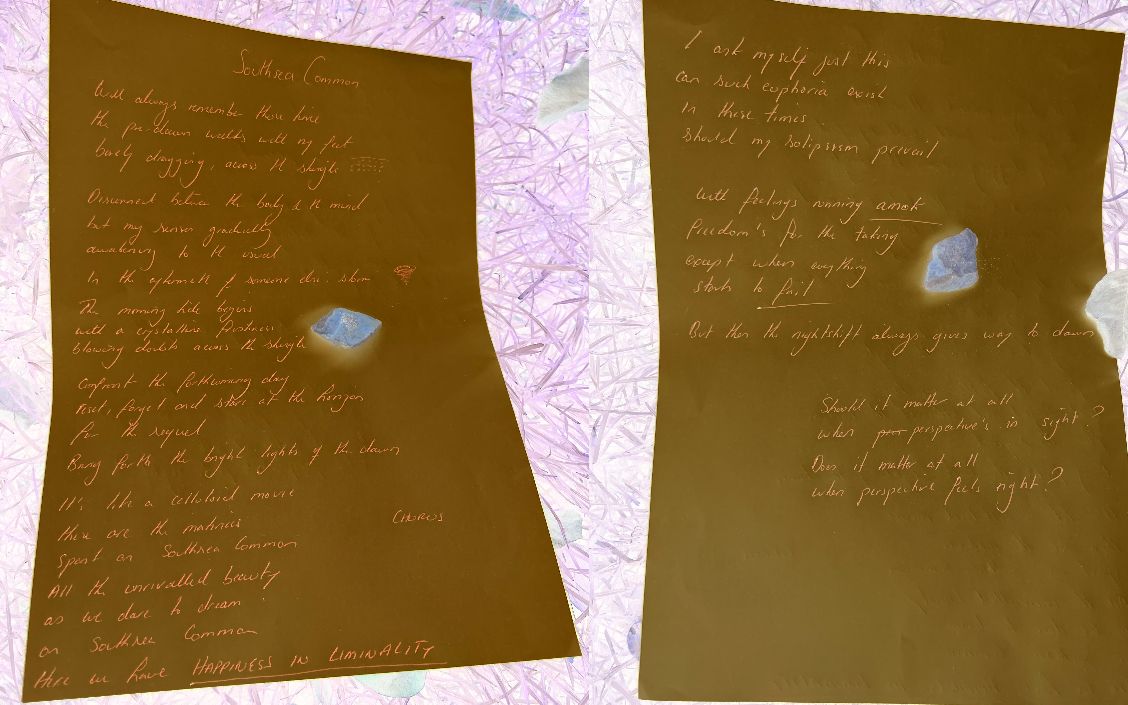 Southsea Common
Will always remember those times
the pre-dawn walks with my feet
barely dragging, across the shingle
Disconnect between the body & the mind
but my senses gradually
awakening to the usual
In the aftermath of someone else's storm
The morning tide begins
with a crystalline freshness
blowing doubts across the shingle
Confront the forthcoming day
Reset, forget and stare at the horizon
for the sequel
Bring forth the bright lights of the dawn
It's like a celluloid movie
these are the matinees
Spent on Southsea Common
CHORUS
All the unrivalled beauty
as we dare to dream
on Southsea Common
Here we have HAPPINESS IN LIMINALITY
I ask myself just this
can such euphoria exist
In these times
Should my solipsism prevail
With feelings running amok
Freedom's for the taking
except when everything
starts to fail
But then the nightshift always gives way to dawn
Should it matter at all
when perspective's in sight?
Does it matter at all
when perspective feels right?